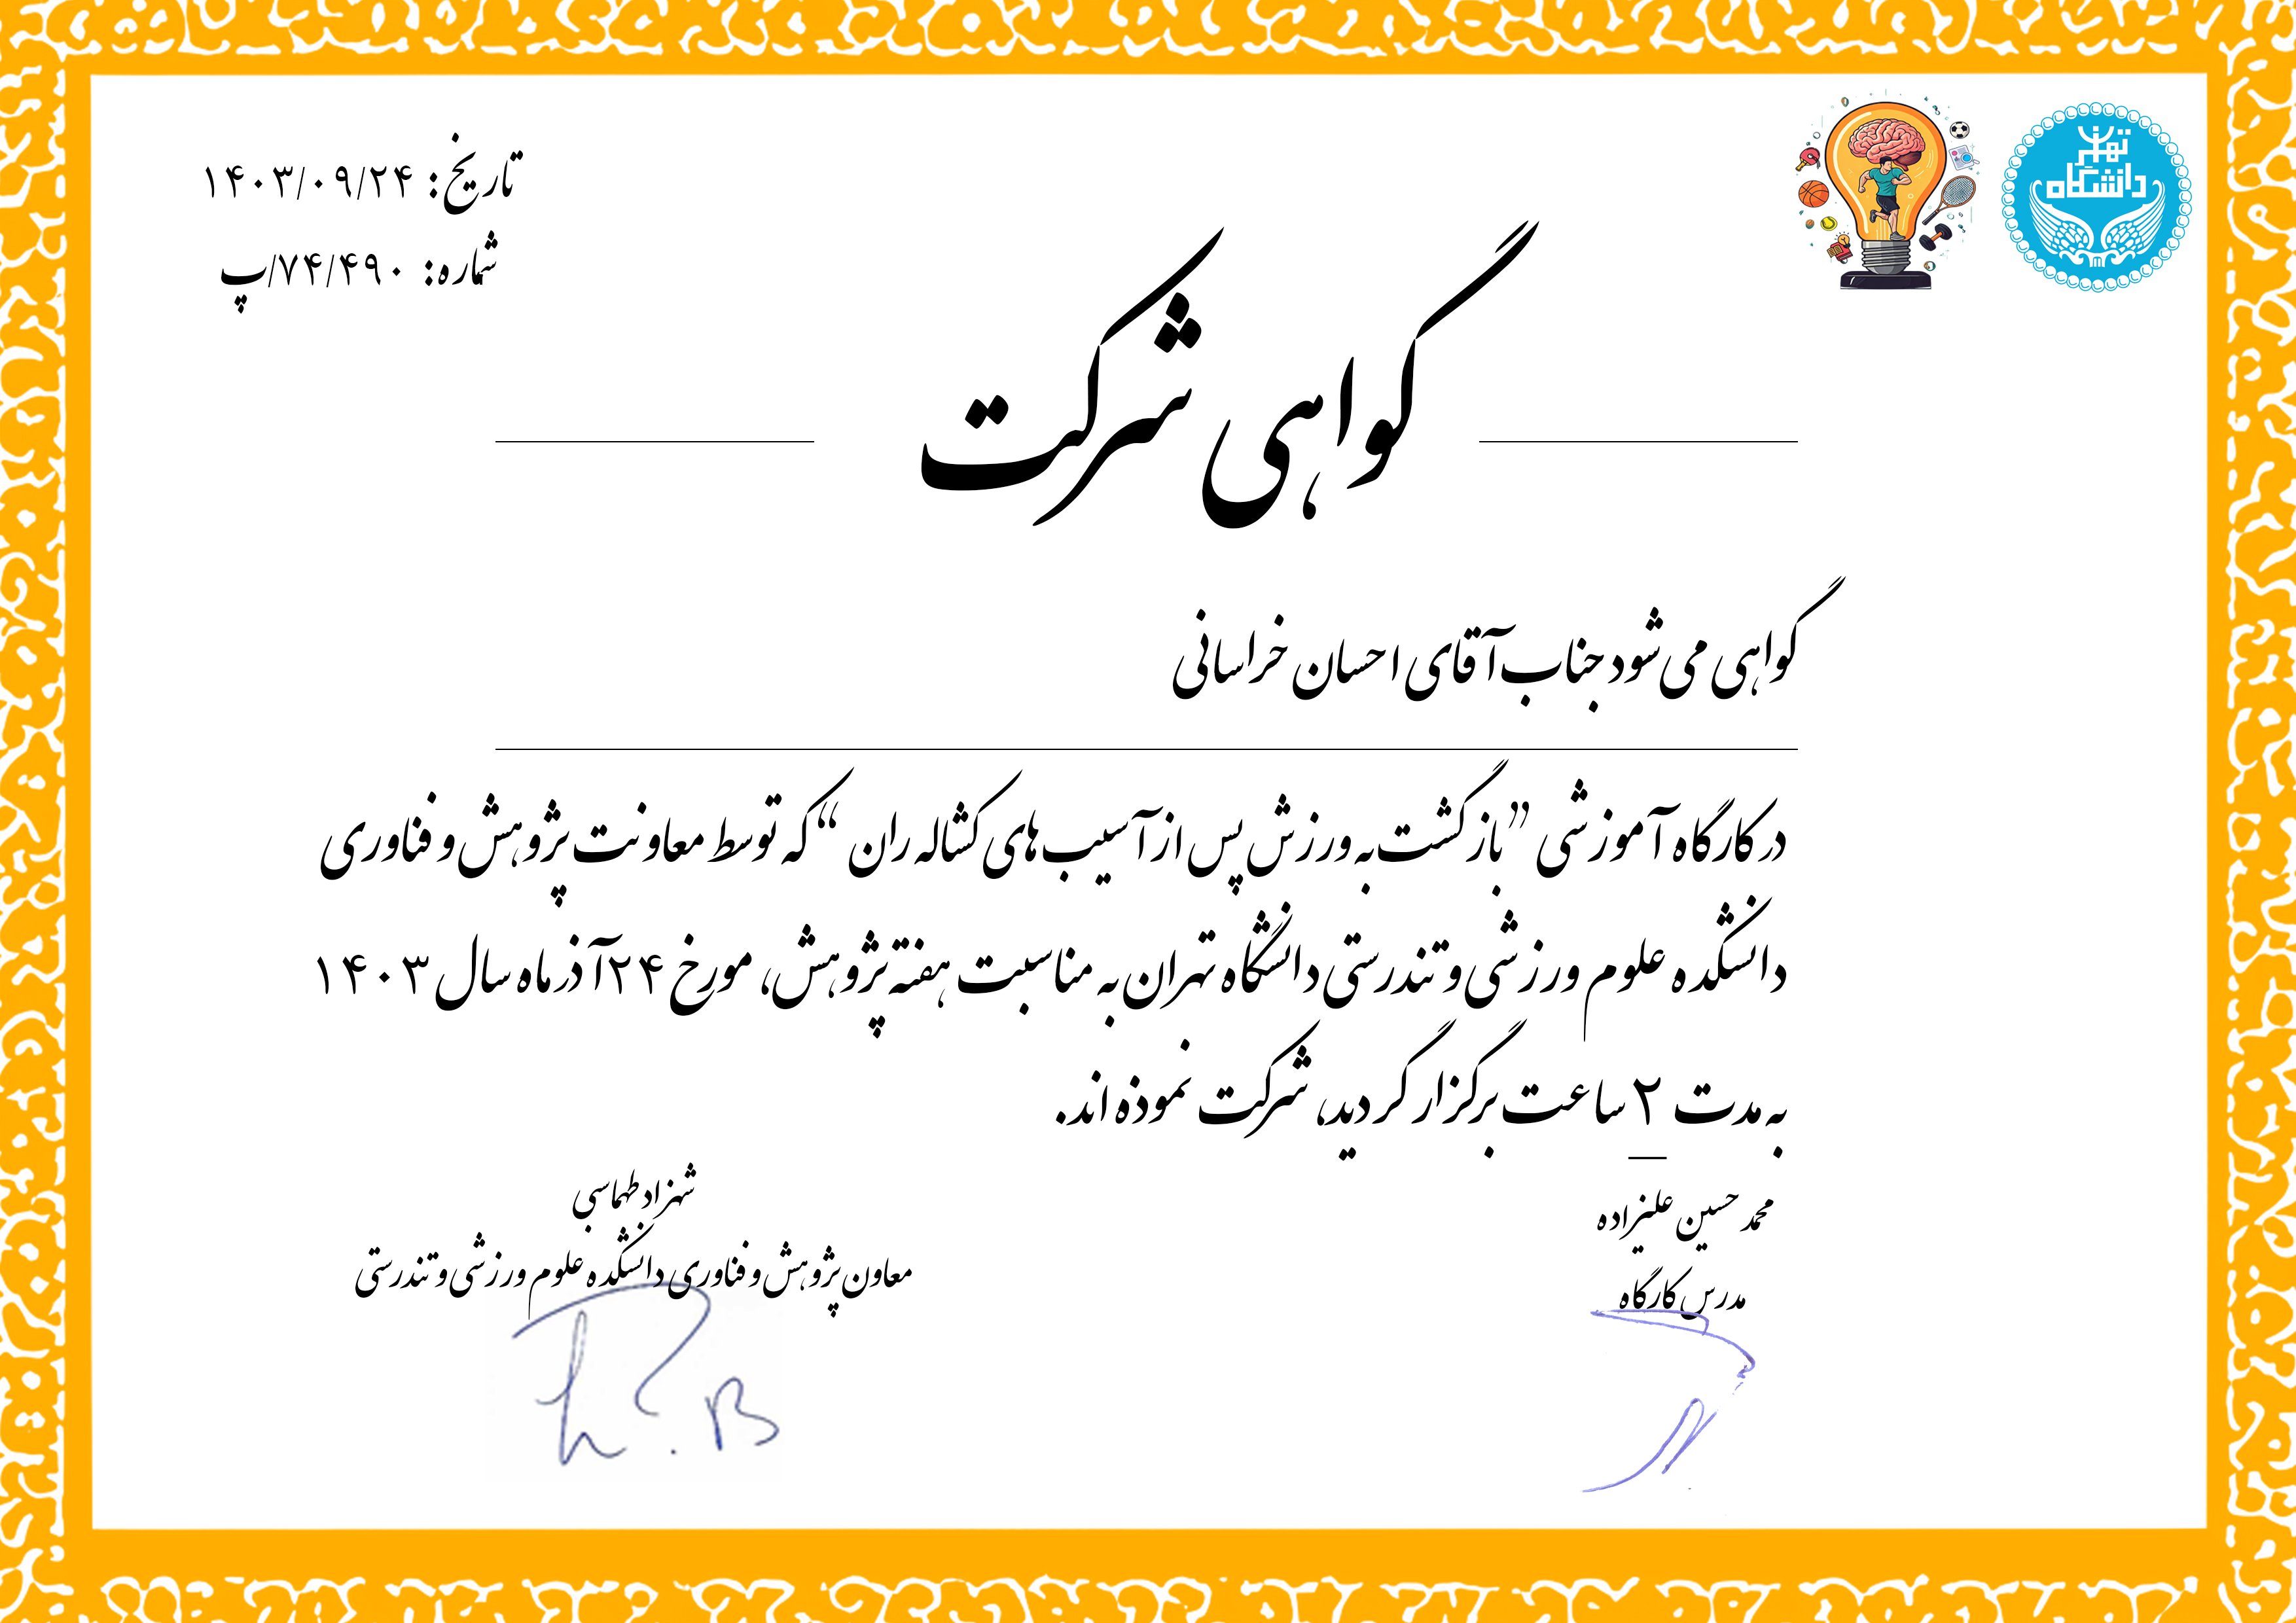 دانشگاه تهران
تاریخ: ۱۴۰۳/۰۹/۲۴
شماره: ۷۴/۴۹۰/پ
گواهی شرکت
گواهی می شود جناب آقای احسان خراسانی
در کارگاه آموزشی ”بازگشت به ورزش پس از آسیب های کشاله ران “که توسط معاونت پژوهش و فناوری
دانشکده علوم ورزشی و تندرستی دانشگاه تهران به مناسبت هفته پژوهش، مورخ ۲۴آذر ماه سال ۱۴۰۳
به مدت ۲ ساعت برگزار گردید، شرکت نموذه اند.
محمد حسین علیزاده
مدرس کارگاه
شهزاد طهماسبی
معاون پژوهش و فناوری دانشکده علوم ورزشی و تندرستی